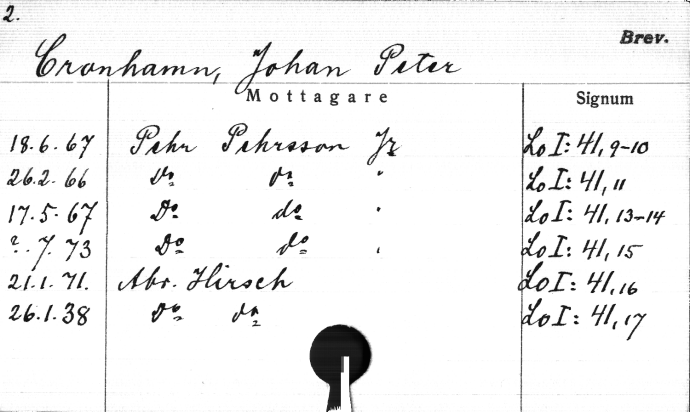 2.
Brev.
Cronhamn, Johan Peter
Mottagare Signum
18.6.67 Pehr Pehrsson Jr Lo I: 41, 9-10
26.2.66 Do do " Lo I: 41, 11
17.5.67 Do do " Lo I: 41, 13-14
?.7.73 Do do " Lo I: 41, 15
21.1.71. Abr. Hirsch Lo I: 41, 16
26.1.38 Do do Lo I: 41, 17